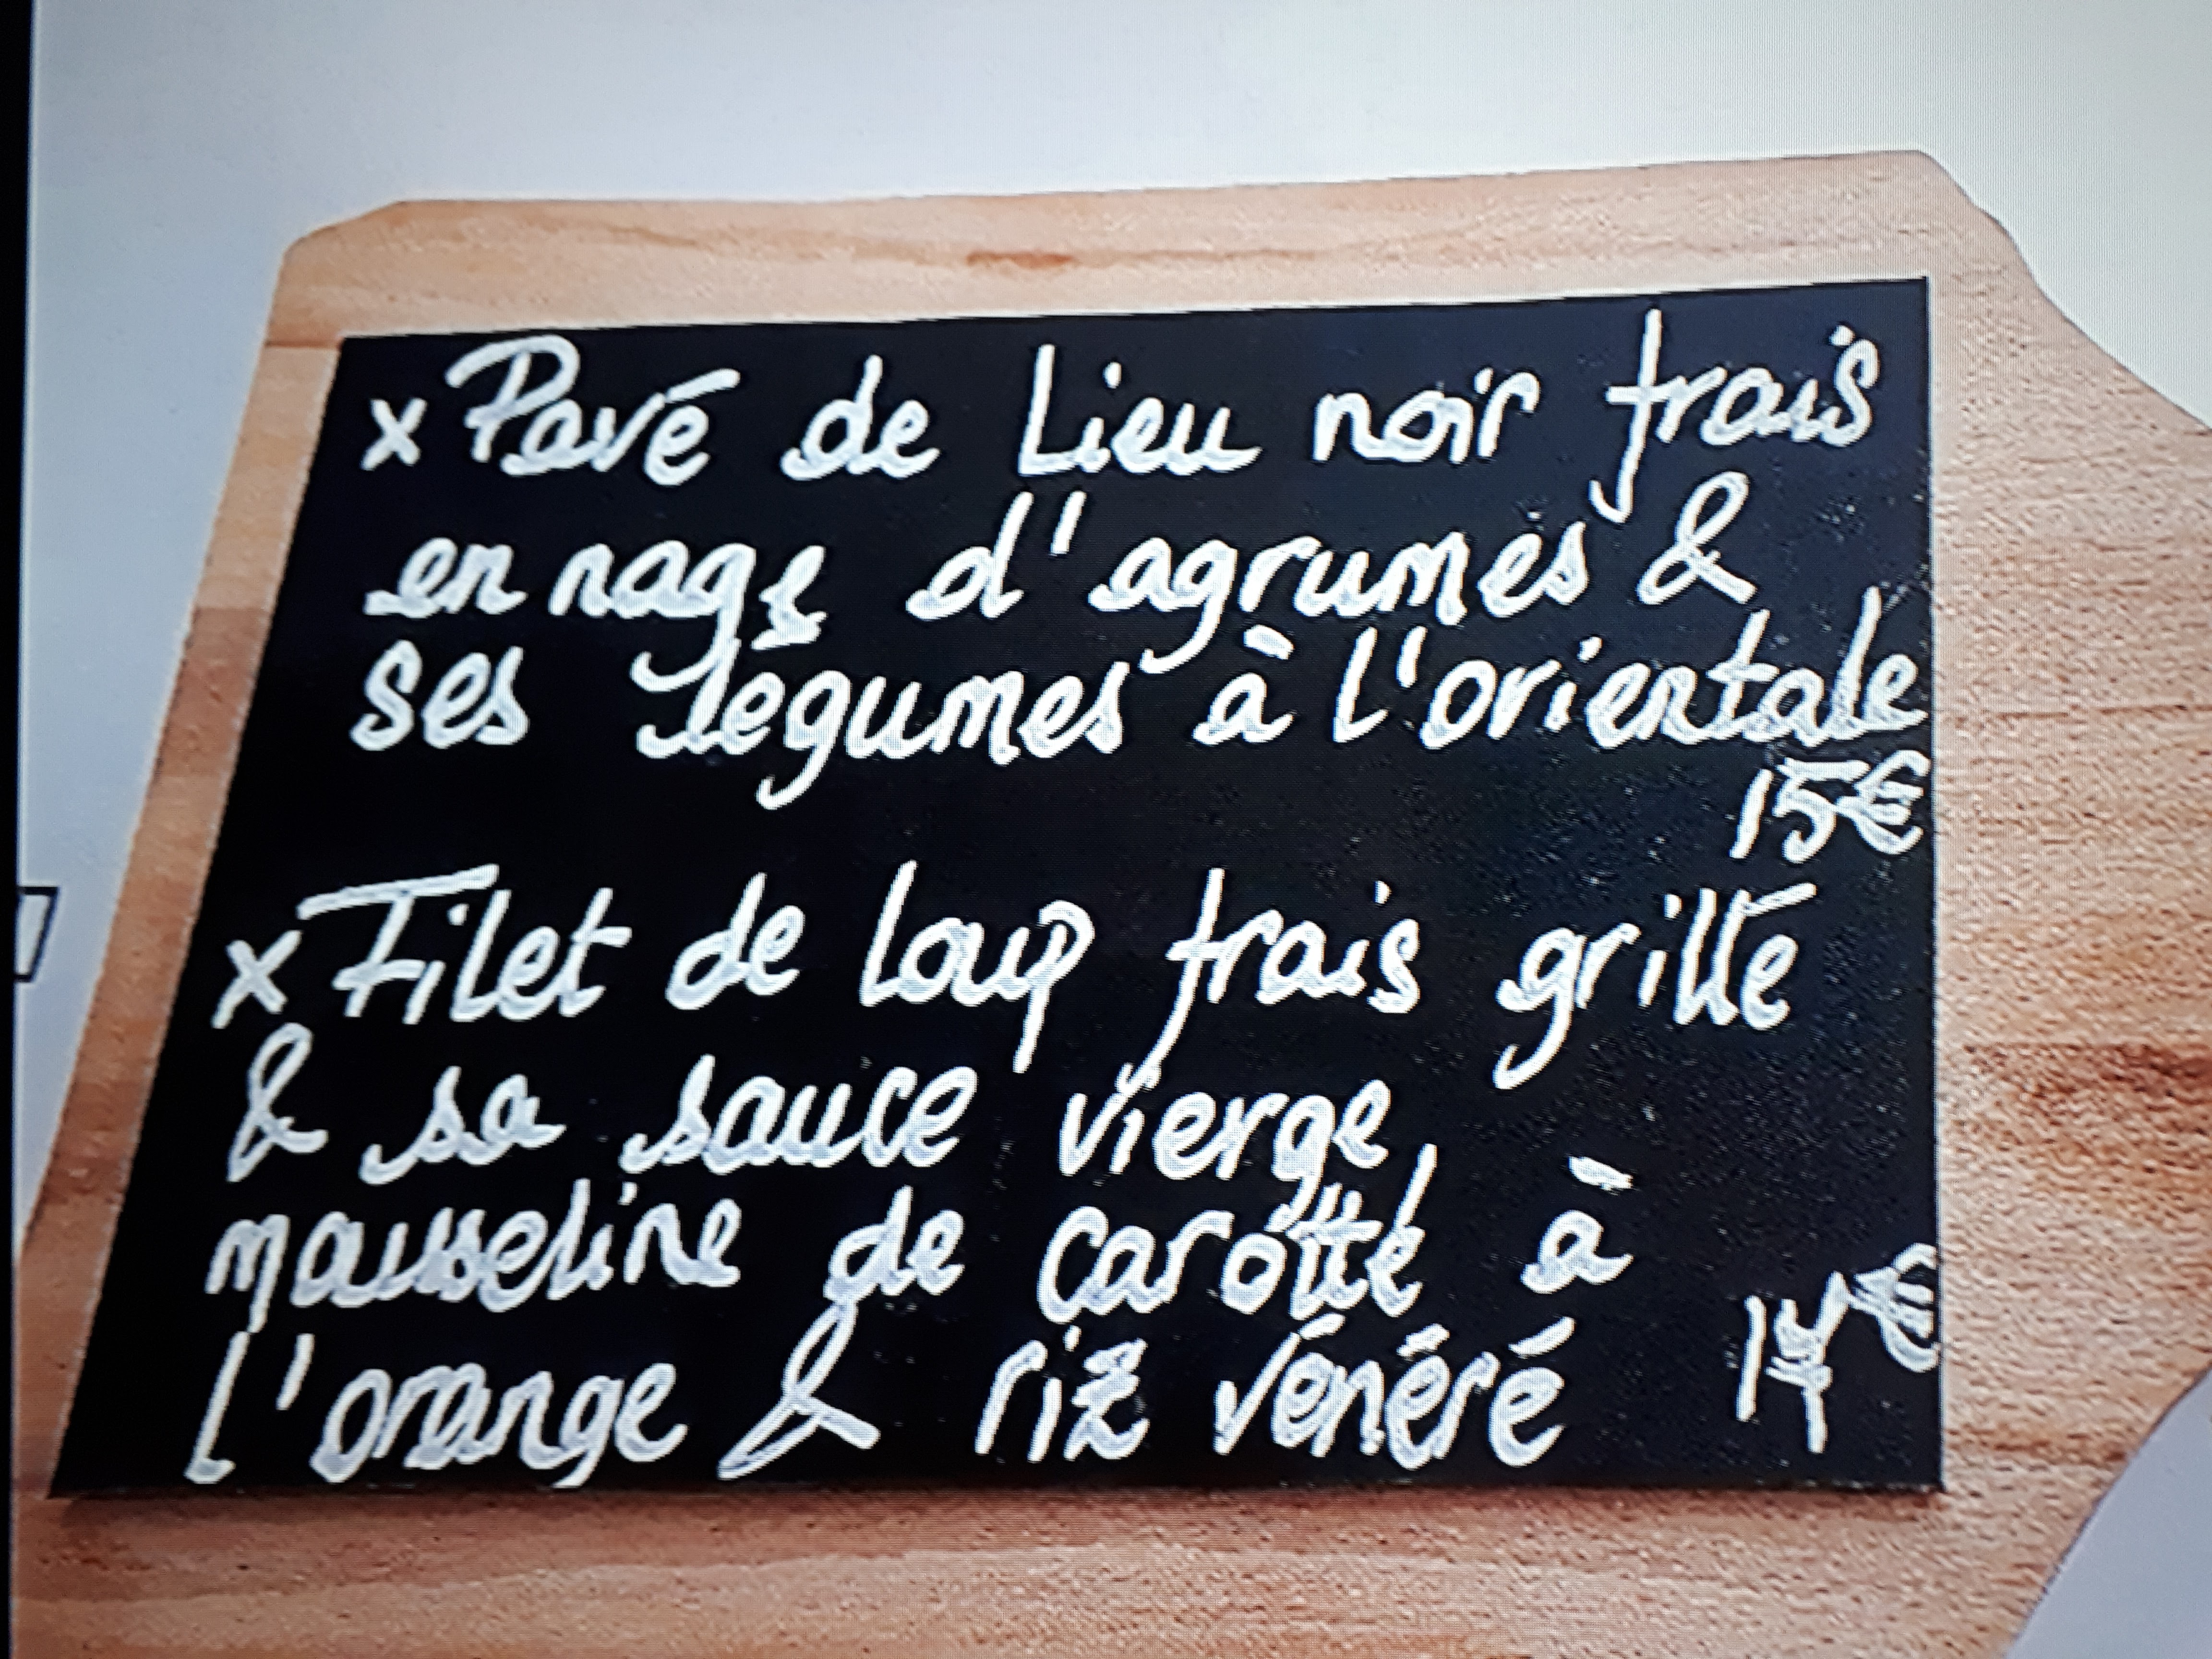 x Pavé de Lieu noir frais
en nage d'agrumes &
ses légumes à l'orientale
15€
x Filet de loup frais grillé
& sa sauce vierge,
mousseline de carotte à
l'orange & riz vénéré 17€